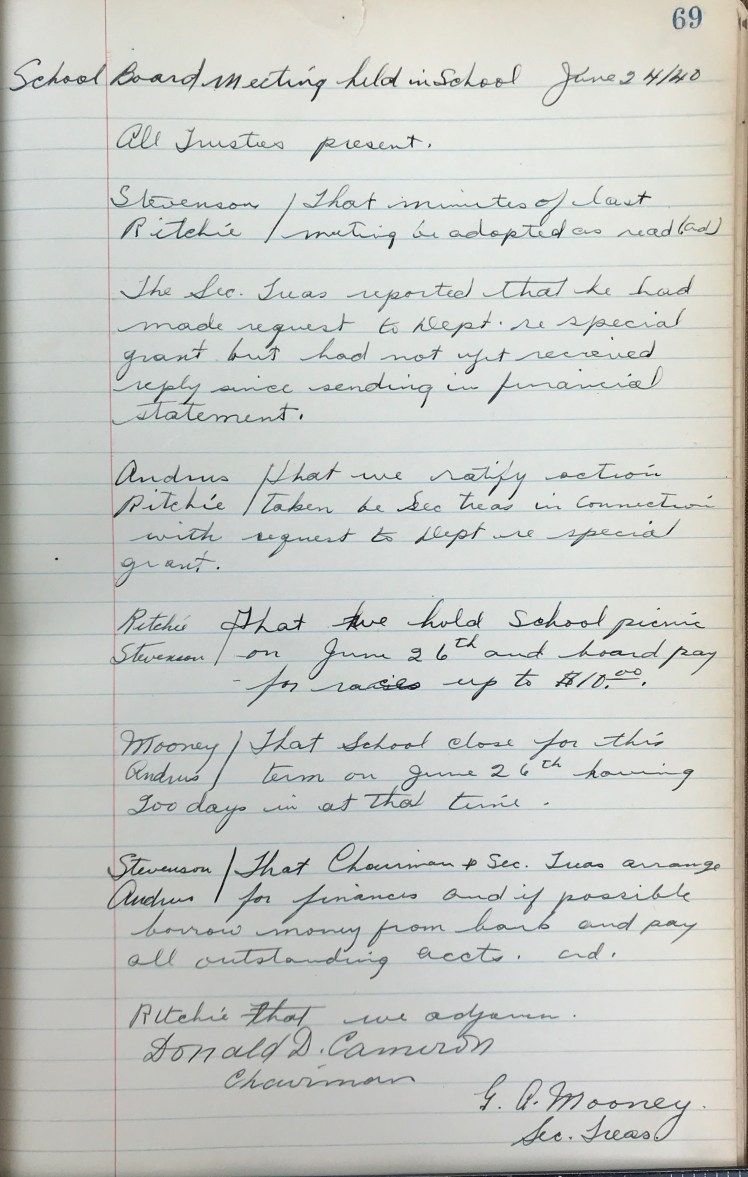 69
School Board Meeting held in School June 24/40
All Trustees present.
Stevenson / That minutes of last
Ritchie / meeting be adopted as read (cd)
The Sec. Treas reported that he had
made request to Dept. re special
grant but had not yet recieved
reply since sending in financial
statement.
Andrus / that we ratify action
Ritchie / taken be Sec Treas in connection
with request to Dept re special
grant.
Ritchie / That we hold School picnic
Stevenson / on June 26th and board pay
- for races up to $10.00.
Mooney / That School close for this
Andrus / term on June 26th having
200 days in at that time.
Stevenson / That Chairman & Sec. Treas arrange
Andrus / for finances and if possible
borrow money from bank and pay
all outstanding accts. crd.
Ritchie That we adjourn.
Donald D. Cameron
Chairman
G. A. Mooney.
Sec. Treas.